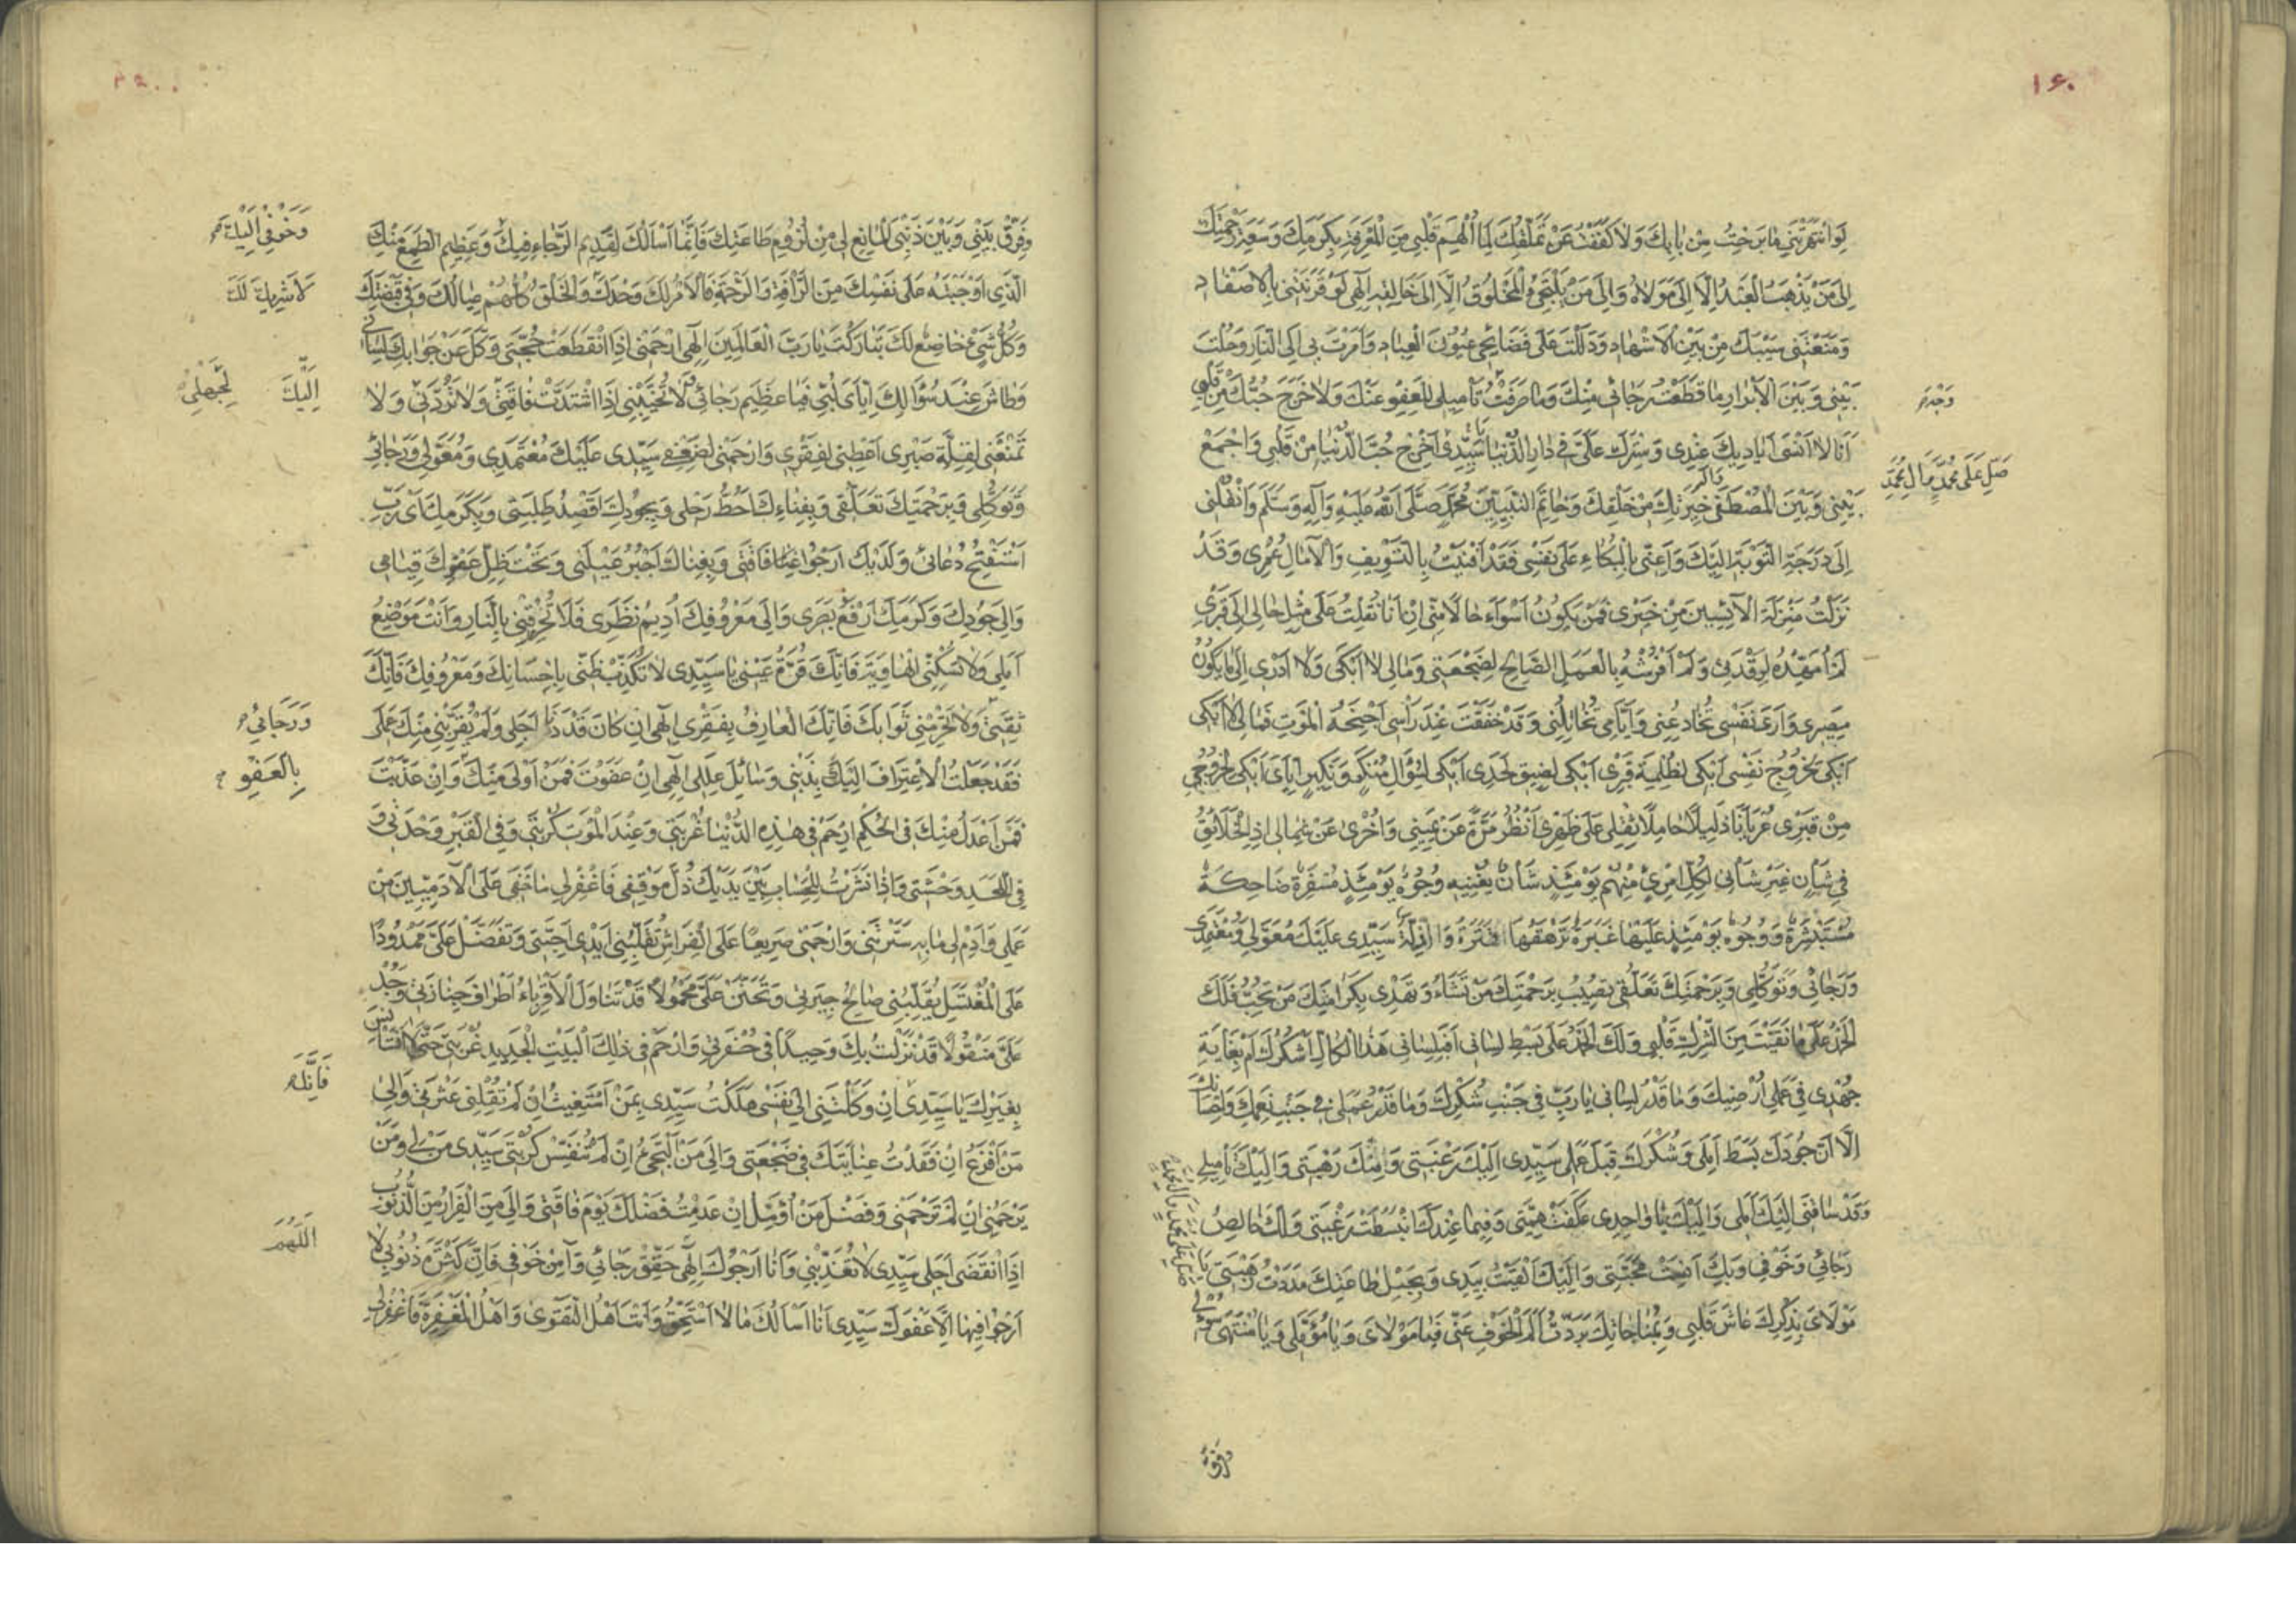 ١٦٠
لَوِ انْتَهَرْتَنِي مَا بَرِحْتُ مِنْ بَابِكَ وَلَا كَفَفْتُ عَنْ تَمَلُّقِكَ لِمَا أُلْهِمَ قَلْبِي مِنَ الْمَعْرِفَةِ بِكَرَمِكَ وَسَعَةِ رَحْمَتِكَ
إِلَى مَنْ يَذْهَبُ الْعَبْدُ إِلَّا إِلَى مَوْلَاهُ وَإِلَى مَنْ يَلْتَجِئُ الْمَخْلُوقُ إِلَّا إِلَى خَالِقِهِ إِلَهِي لَوْ قَرَنْتَنِي بِالْأَصْفَادِ
وَمَنَعْتَنِي سَيْبَكَ مِنْ بَيْنِ الْأَشْهَادِ وَدَلَلْتَ عَلَى فَضَايِحِي عُيُونَ الْعِبَادِ وَأَمَرْتَ بِي إِلَى النَّارِ وَحُلْتَ
بَيْنِي وَبَيْنَ الْأَبْرَارِ مَا قَطَعْتُ رَجَائِي مِنْكَ وَمَا صَرَفْتُ تَأْمِيلِي لِلْعَفْوِ عَنْكَ وَلَا خَرَجَ حُبُّكَ مِنْ قَلْبِي
أَنَا لَا أَنْسَى أَيَادِيكَ عِنْدِي وَسِتْرَكَ عَلَيَّ فِي دَارِ الدُّنْيَا سَيِّدِي أَخْرِجْ حُبَّ الدُّنْيَا مِنْ قَلْبِي وَاجْمَعْ
صَلِّ عَلَى مُحَمَّدٍ وَآلِ مُحَمَّدٍ
بَيْنِي وَبَيْنَ الْمُصْطَفَى خِيَرَتِكَ مِنْ خَلْقِكَ وَخَاتَمِ النَّبِيِّينَ مُحَمَّدٍ صَلَّى اللهُ عَلَيْهِ وَآلِهِ وَسَلَّمَ وَانْقُلْنِي
إِلَى دَرَجَةِ التَّوْبَةِ إِلَيْكَ وَأَعِنِّي بِالْبُكَاءِ عَلَى نَفْسِي فَقَدْ أَفْنَيْتُ بِالتَّسْوِيفِ وَالْآمَالِ عُمْرِي وَقَدْ
نَزَلْتُ مَنْزِلَةَ الْآيِسِينَ مِنْ خَيْرِي فَمَنْ يَكُونُ أَسْوَأَ حَالًا مِنِّي إِنْ أَنَا نُقِلْتُ عَلَى مِثْلِ حَالِي إِلَى قَبْرِي
لَمْ أُمَهِّدْهُ لِرَقْدَتِي وَلَمْ أَفْرُشْهُ بِالْعَمَلِ الصَّالِحِ لِضَجْعَتِي وَمَا لِي لَا أَبْكِي وَلَا أَدْرِي إِلَى مَا يَكُونُ
مَصِيرِي وَأَرَى نَفْسِي تُخَادِعُنِي وَأَيَّامِي تُخَاتِلُنِي وَقَدْ خَفَقَتْ عِنْدَ رَأْسِي أَجْنِحَةُ الْمَوْتِ فَمَا لِي لَا أَبْكِي
أَبْكِي لِخُرُوجِ نَفْسِي أَبْكِي لِظُلْمَةِ قَبْرِي أَبْكِي لِضِيقِ لَحْدِي أَبْكِي لِسُؤَالِ مُنْكَرٍ وَنَكِيرٍ إِيَّايَ أَبْكِي لِخُرُوجِي
مِنْ قَبْرِي عُرْيَانًا ذَلِيلًا حَامِلًا ثِقْلِي عَلَى ظَهْرِي أَنْظُرُ مَرَّةً عَنْ يَمِينِي وَأُخْرَى عَنْ شِمَالِي إِذِ الْخَلَائِقُ
فِي شَأْنٍ غَيْرِ شَأْنِي لِكُلِّ امْرِئٍ مِنْهُمْ يَوْمَئِذٍ شَأْنٌ يُغْنِيهِ وُجُوهٌ يَوْمَئِذٍ مُسْفِرَةٌ ضَاحِكَةٌ
مُسْتَبْشِرَةٌ وَوُجُوهٌ يَوْمَئِذٍ عَلَيْهَا غَبَرَةٌ تَرْهَقُهَا قَتَرَةٌ وَذِلَّةٌ سَيِّدِي عَلَيْكَ مُعَوَّلِي وَمُعْتَمَدِي
وَرَجَائِي وَتَوَكُّلِي وَبِرَحْمَتِكَ تَعَلُّقِي تُصِيبُ بِرَحْمَتِكَ مَنْ تَشَاءُ وَتَهْدِي بِكَرَامَتِكَ مَنْ تُحِبُّ فَلَكَ
الْحَمْدُ عَلَى مَا نَقَّيْتَ مِنَ الشِّرْكِ قَلْبِي وَلَكَ الْحَمْدُ عَلَى بَسْطِ لِسَانِي أَفَبِلِسَانِي هَذَا الْكَالِّ أَشْكُرُكَ أَمْ بِغَايَةِ
جُهْدِي فِي عَمَلِي أُرْضِيكَ وَمَا قَدْرُ لِسَانِي يَا رَبِّ فِي جَنْبِ شُكْرِكَ وَمَا قَدْرُ عَمَلِي فِي جَنْبِ نِعَمِكَ وَإِحْسَانِكَ
إِلَّا أَنَّ جُودَكَ بَسَطَ أَمَلِي وَشُكْرَكَ قَبِلَ عَمَلِي سَيِّدِي إِلَيْكَ رَغْبَتِي وَمِنْكَ رَهْبَتِي وَإِلَيْكَ تَأْمِيلِي
وَقَدْ سَاقَنِي إِلَيْكَ أَمَلِي وَإِلَيْكَ يَا وَاحِدِي عَكَفَتْ هِمَّتِي وَفِيمَا عِنْدَكَ انْبَسَطَتْ رَغْبَتِي وَلَكَ خَالِصُ
رَجَائِي وَخَوْفِي وَبِكَ أَنِسَتْ مَحَبَّتِي وَإِلَيْكَ أَلْقَيْتُ بِيَدِي وَبِحَبْلِ طَاعَتِكَ مَدَدْتُ رَهْبَتِي يَا
مَوْلَايَ بِذِكْرِكَ عَاشَ قَلْبِي وَبِمُنَاجَاتِكَ بَرَّدْتُ أَلَمَ الْخَوْفِ عَنِّي فَيَا مَوْلَايَ وَيَا مُؤَمَّلِي وَيَا مُنْتَهَى سُؤْلِي
صَلِّ عَلَى مُحَمَّدٍ وَآلِ مُحَمَّدٍ
وَفَرِّقْ
وَفَرِّقْ بَيْنِي وَبَيْنَ ذَنْبِيَ الْمَانِعِ لِي مِنْ لُزُومِ طَاعَتِكَ فَإِنَّمَا أَسْأَلُكَ لِقَدِيمِ الرَّجَاءِ فِيكَ وَعَظِيمِ الطَّمَعِ مِنْكَ
وَخَوْفِي إِلَيْكَ
الَّذِي أَوْجَبْتَهُ عَلَى نَفْسِكَ مِنَ الرَّأْفَةِ وَالرَّحْمَةِ فَالْأَمْرُ لَكَ وَحْدَكَ وَالْخَلْقُ كُلُّهُمْ عِيَالُكَ وَفِي قَبْضَتِكَ
لَا شَرِيكَ لَكَ
وَكُلُّ شَيْءٍ خَاضِعٌ لَكَ تَبَارَكْتَ يَا رَبَّ الْعَالَمِينَ إِلَهِي ارْحَمْنِي إِذَا انْقَطَعَتْ حُجَّتِي وَكَلَّ عَنْ جَوَابِكَ لِسَانِي
وَطَاشَ عِنْدَ سُؤَالِكَ إِيَّايَ لُبِّي فَيَا عَظِيمَ رَجَائِي لَا تُخَيِّبْنِي إِذَا اشْتَدَّتْ فَاقَتِي وَلَا تَرُدَّنِي وَلَا
إِلَيْكَ
لِجَهْلِي
تَمْنَعْنِي لِقِلَّةِ صَبْرِي أَعْطِنِي لِفَقْرِي وَارْحَمْنِي لِضَعْفِي سَيِّدِي عَلَيْكَ مُعْتَمَدِي وَمُعَوَّلِي وَرَجَائِي
وَتَوَكُّلِي وَبِرَحْمَتِكَ تَعَلُّقِي وَبِفِنَاءِكَ أَحُطُّ رَحْلِي وَبِجُودِكَ أَقْصِدُ طَلِبَتِي وَبِكَرَمِكَ أَيْ رَبِّ
أَسْتَفْتِحُ دُعَائِي وَلَدَيْكَ أَرْجُو غِنَا فَاقَتِي وَبِغِنَاكَ أَجْبُرُ عَيْلَتِي وَتَحْتَ ظِلِّ عَفْوِكَ قِيَامِي
وَإِلَى جُودِكَ وَكَرَمِكَ أَرْفَعُ بَصَرِي وَإِلَى مَعْرُوفِكَ أُدِيمُ نَظَرِي فَلَا تُحْرِقْنِي بِالنَّارِ وَأَنْتَ مَوْضِعُ
أَمَلِي وَلَا تُسْكِنِّي الْهَاوِيَةَ فَإِنَّكَ قُرَّةُ عَيْنِي يَا سَيِّدِي لَا تُكَذِّبْ ظَنِّي بِإِحْسَانِكَ وَمَعْرُوفِكَ فَإِنَّكَ
ثِقَتِي وَلَا تَحْرِمْنِي ثَوَابَكَ فَإِنَّكَ الْعَارِفُ بِفَقْرِي إِلَهِي إِنْ كَانَ قَدْ دَنَا أَجَلِي وَلَمْ يُقَرِّبْنِي مِنْكَ عَمَلِي
وَرَجَائِي
فَقَدْ جَعَلْتُ الِاعْتِرَافَ إِلَيْكَ بِذَنْبِي وَسَائِلَ عِلَلِي إِلَهِي إِنْ عَفَوْتَ فَمَنْ أَوْلَى مِنْكَ وَإِنْ عَذَّبْتَ
بِالْعَفْوِ
فَمَنْ أَعْدَلُ مِنْكَ فِي الْحُكْمِ ارْحَمْ فِي هَذِهِ الدُّنْيَا غُرْبَتِي وَعِنْدَ الْمَوْتِ كُرْبَتِي وَفِي الْقَبْرِ وَحْدَتِي وَ
فِي اللَّحْدِ وَحْشَتِي وَإِذَا نُشِرْتُ لِلْحِسَابِ بَيْنَ يَدَيْكَ ذُلَّ مَوْقِفِي فَاغْفِرْ لِي مَا خَفِيَ عَلَى الْآدَمِيِّينَ مِنْ
عَمَلِي وَأَدِمْ لِي مَا بِهِ سَتَرْتَنِي وَارْحَمْنِي صَرِيعًا عَلَى الْفِرَاشِ تُقَلِّبُنِي أَيْدِي أَحِبَّتِي وَتَفَضَّلْ عَلَيَّ مَمْدُودًا
عَلَى الْمُغْتَسَلِ يُقَلِّبُنِي صَالِحُ جِيرَتِي وَتَحَنَّنْ عَلَيَّ مَحْمُولًا قَدْ تَنَاوَلَ الْأَقْرِبَاءُ أَطْرَافَ جِنَازَتِي وَجُدْ
عَلَيَّ مَنْقُولًا قَدْ نَزَلْتُ بِكَ وَحِيدًا فِي حُفْرَتِي وَارْحَمْ فِي ذَلِكَ الْبَيْتِ الْجَدِيدِ غُرْبَتِي حَتَّى لَا أَسْتَأْنِسَ
بِغَيْرِكَ يَا سَيِّدِي إِنْ وَكَلْتَنِي إِلَى نَفْسِي هَلَكْتُ سَيِّدِي بِمَنْ أَسْتَغِيثُ إِنْ لَمْ تُقِلْنِي عَثْرَتِي وَإِلَى
فَإِنَّكَ
مَنْ أَفْزَعُ إِنْ فَقَدْتُ عِنَايَتَكَ فِي ضَجْعَتِي وَإِلَى مَنْ أَلْتَجِئُ إِنْ لَمْ تُنَفِّسْ كُرْبَتِي سَيِّدِي مَنْ لِي وَمَنْ
يَرْحَمُنِي إِنْ لَمْ تَرْحَمْنِي وَفَضْلَ مَنْ أُؤَمِّلُ إِنْ عَدِمْتُ فَضْلَكَ يَوْمَ فَاقَتِي وَإِلَى مَنِ الْفِرَارُ مِنَ الذُّنُوبِ
إِذَا انْقَضَى أَجَلِي سَيِّدِي لَا تُعَذِّبْنِي وَأَنَا أَرْجُوكَ إِلَهِي حَقِّقْ رَجَائِي وَآمِنْ خَوْفِي فَإِنَّ كَثْرَةَ ذُنُوبِي لَا
اللَّهُمَّ
أَرْجُو فِيهَا إِلَّا عَفْوَكَ سَيِّدِي أَنَا أَسْأَلُكَ مَا لَا أَسْتَحِقُّ وَأَنْتَ أَهْلُ التَّقْوَى وَأَهْلُ الْمَغْفِرَةِ فَاغْفِرْ لِي